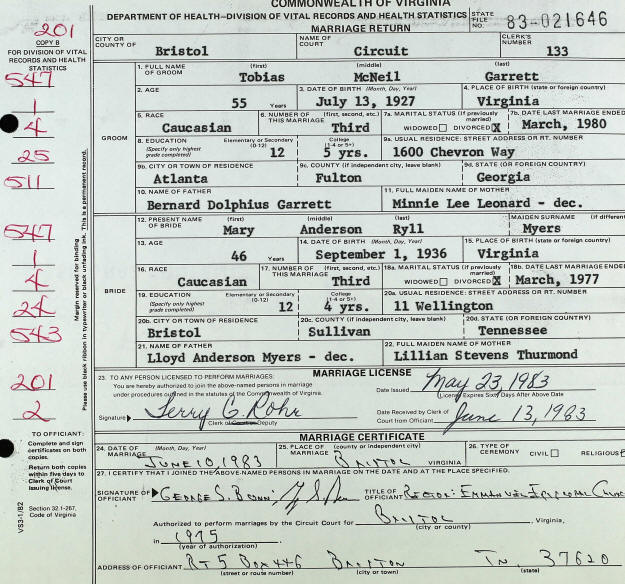 COMMONWEALTH OF VIRGINIA
DEPARTMENT OF HEALTH—DIVISION OF VITAL RECORDS AND HEALTH STATISTICS
MARRIAGE RETURN
STATE FILE NO. 83-021646
201
COPY B
FOR DIVISION OF VITAL RECORDS AND HEALTH STATISTICS
CITY OR COUNTY OF Bristol NAME OF COURT Circuit CLERK'S NUMBER 133
547
1
4
25
511
GROOM
1. FULL NAME OF GROOM (first) Tobias (middle) McNeil (last) Garrett
2. AGE 55 Years 3. DATE OF BIRTH (Month, Day, Year) July 13, 1927 4. PLACE OF BIRTH (state or foreign country) Virginia
5. RACE Caucasian 6. NUMBER OF THIS MARRIAGE (first, second, etc.) Third 7a. MARITAL STATUS (if previously married) WIDOWED DIVORCED X 7b. DATE LAST MARRIAGE ENDED March, 1980
8. EDUCATION (Specify only highest grade completed) Elementary or Secondary (0-12) 12 College (1-4 or 5+) 5 yrs. 9a. USUAL RESIDENCE: STREET ADDRESS OR RT. NUMBER 1600 Chevron Way
9b. CITY OR TOWN OF RESIDENCE Atlanta 9c. COUNTY (if independent city, leave blank) Fulton 9d. STATE (OR FOREIGN COUNTRY) Georgia
10. NAME OF FATHER Bernard Dolphius Garrett 11. FULL MAIDEN NAME OF MOTHER Minnie Lee Leonard - dec.
547
1
4
24
543
BRIDE
12. PRESENT NAME OF BRIDE (first) Mary (middle) Anderson (last) Ryll MAIDEN SURNAME (if different) Myers
13. AGE 46 Years 14. DATE OF BIRTH (Month, Day, Year) September 1, 1936 15. PLACE OF BIRTH (state or foreign country) Virginia
16. RACE Caucasian 17. NUMBER OF THIS MARRIAGE (first, second, etc.) Third 18a. MARITAL STATUS (if previously married) WIDOWED DIVORCED X 18b. DATE LAST MARRIAGE ENDED March, 1977
19. EDUCATION (Specify only highest grade completed) Elementary or Secondary (0-12) 12 College (1-4 or 5+) 4 yrs. 20a. USUAL RESIDENCE: STREET ADDRESS OR RT. NUMBER 11 Wellington
20b. CITY OR TOWN OF RESIDENCE Bristol 20c. COUNTY (if independent city, leave blank) Sullivan 20d. STATE (OR FOREIGN COUNTRY) Tennessee
21. NAME OF FATHER Lloyd Anderson Myers - dec. 22. FULL MAIDEN NAME OF MOTHER Lillian Stevens Thurmond
Margin reserved for binding
Please use black ribbon in typewriter or black unfading ink. This is a permanent record.
201
2
MARRIAGE LICENSE
23. TO ANY PERSON LICENSED TO PERFORM MARRIAGES:
You are hereby authorized to join the above-named persons in marriage under procedures outlined in the statutes of the Commonwealth of Virginia.
Date Issued May 23, 1983
(License Expires Sixty Days After Above Date)
Signature Terry G. Rohr
Clerk of Court or Deputy
Date Received by Clerk of Court from Officiant June 13, 1983
TO OFFICIANT:
Complete and sign certificates on both copies.
Return both copies within five days to Clerk of Court issuing license.
Section 32.1-267, Code of Virginia
VS3-1/82
MARRIAGE CERTIFICATE
24. DATE OF MARRIAGE (Month, Day, Year) JUNE 10, 1983 25. PLACE OF MARRIAGE (county or independent city) BRISTOL VIRGINIA 26. TYPE OF CEREMONY CIVIL RELIGIOUS
27. I CERTIFY THAT I JOINED THE ABOVE-NAMED PERSONS IN MARRIAGE ON THE DATE AND AT THE PLACE SPECIFIED.
SIGNATURE OF OFFICIANT GEORGE S. TITLE OF OFFICIANT RECTOR: EMMANUEL EPISCOPAL
Authorized to perform marriages by the Circuit Court for BRISTOL, Virginia,
(city or county)
in 1975
(year of authorization)
ADDRESS OF OFFICIANT RT 5 BOX 446 TN. 37620
(street or route number) (city or town) (state)